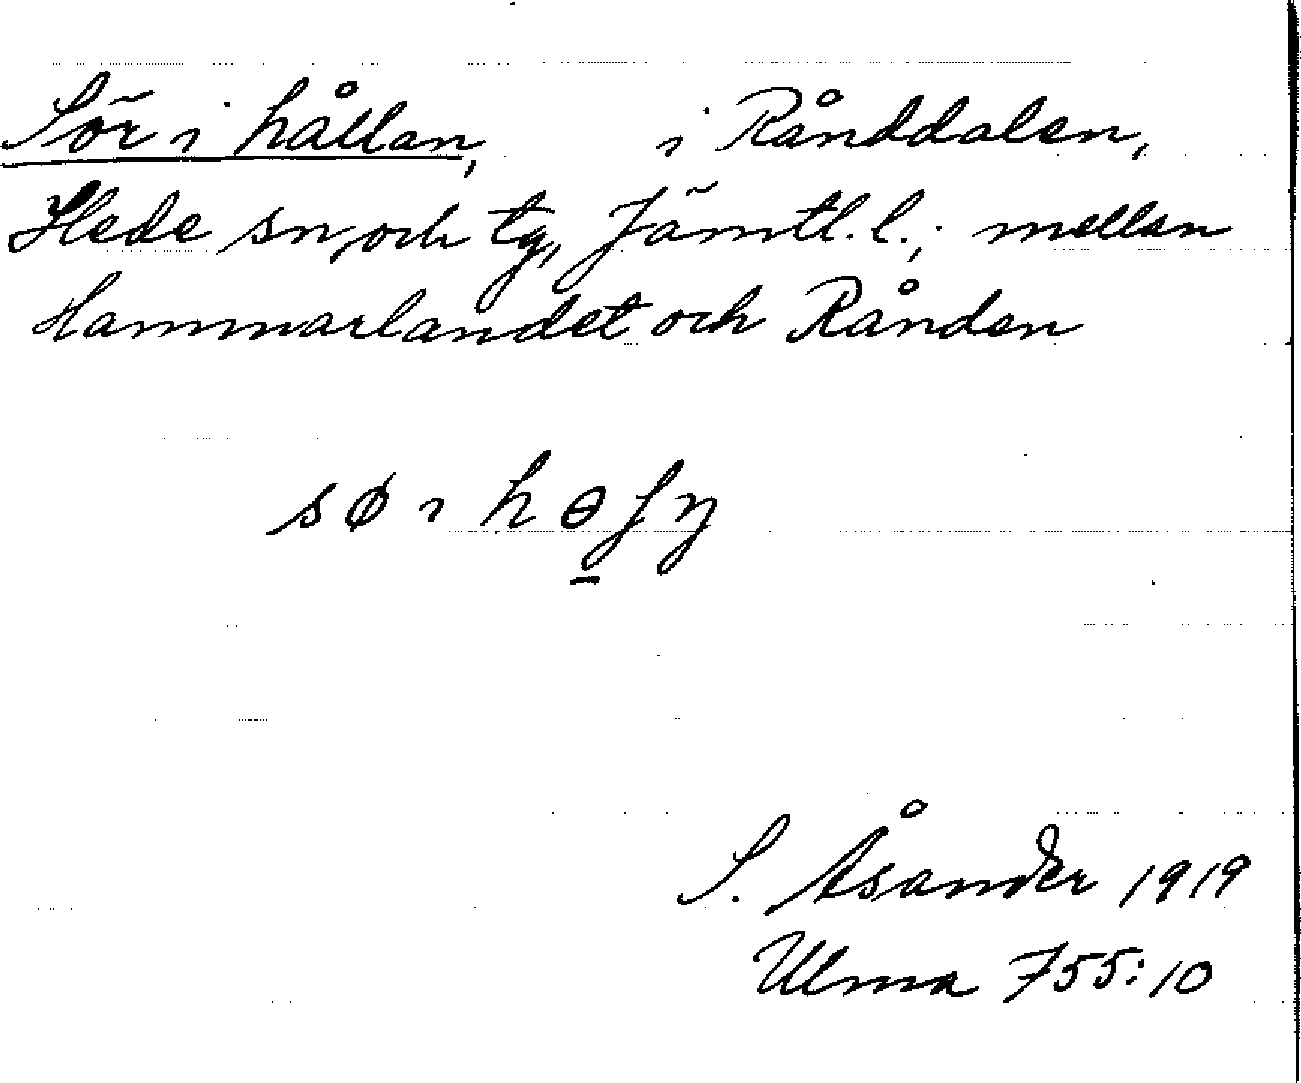 Sör i hållan, i Rånddalen,
Hede sn, och tg, Jämtl. l.; mellan
Hammarlandet och Rånden
sø ı hɵʃŋ
S. Åsander 1919
Ulma 755:10